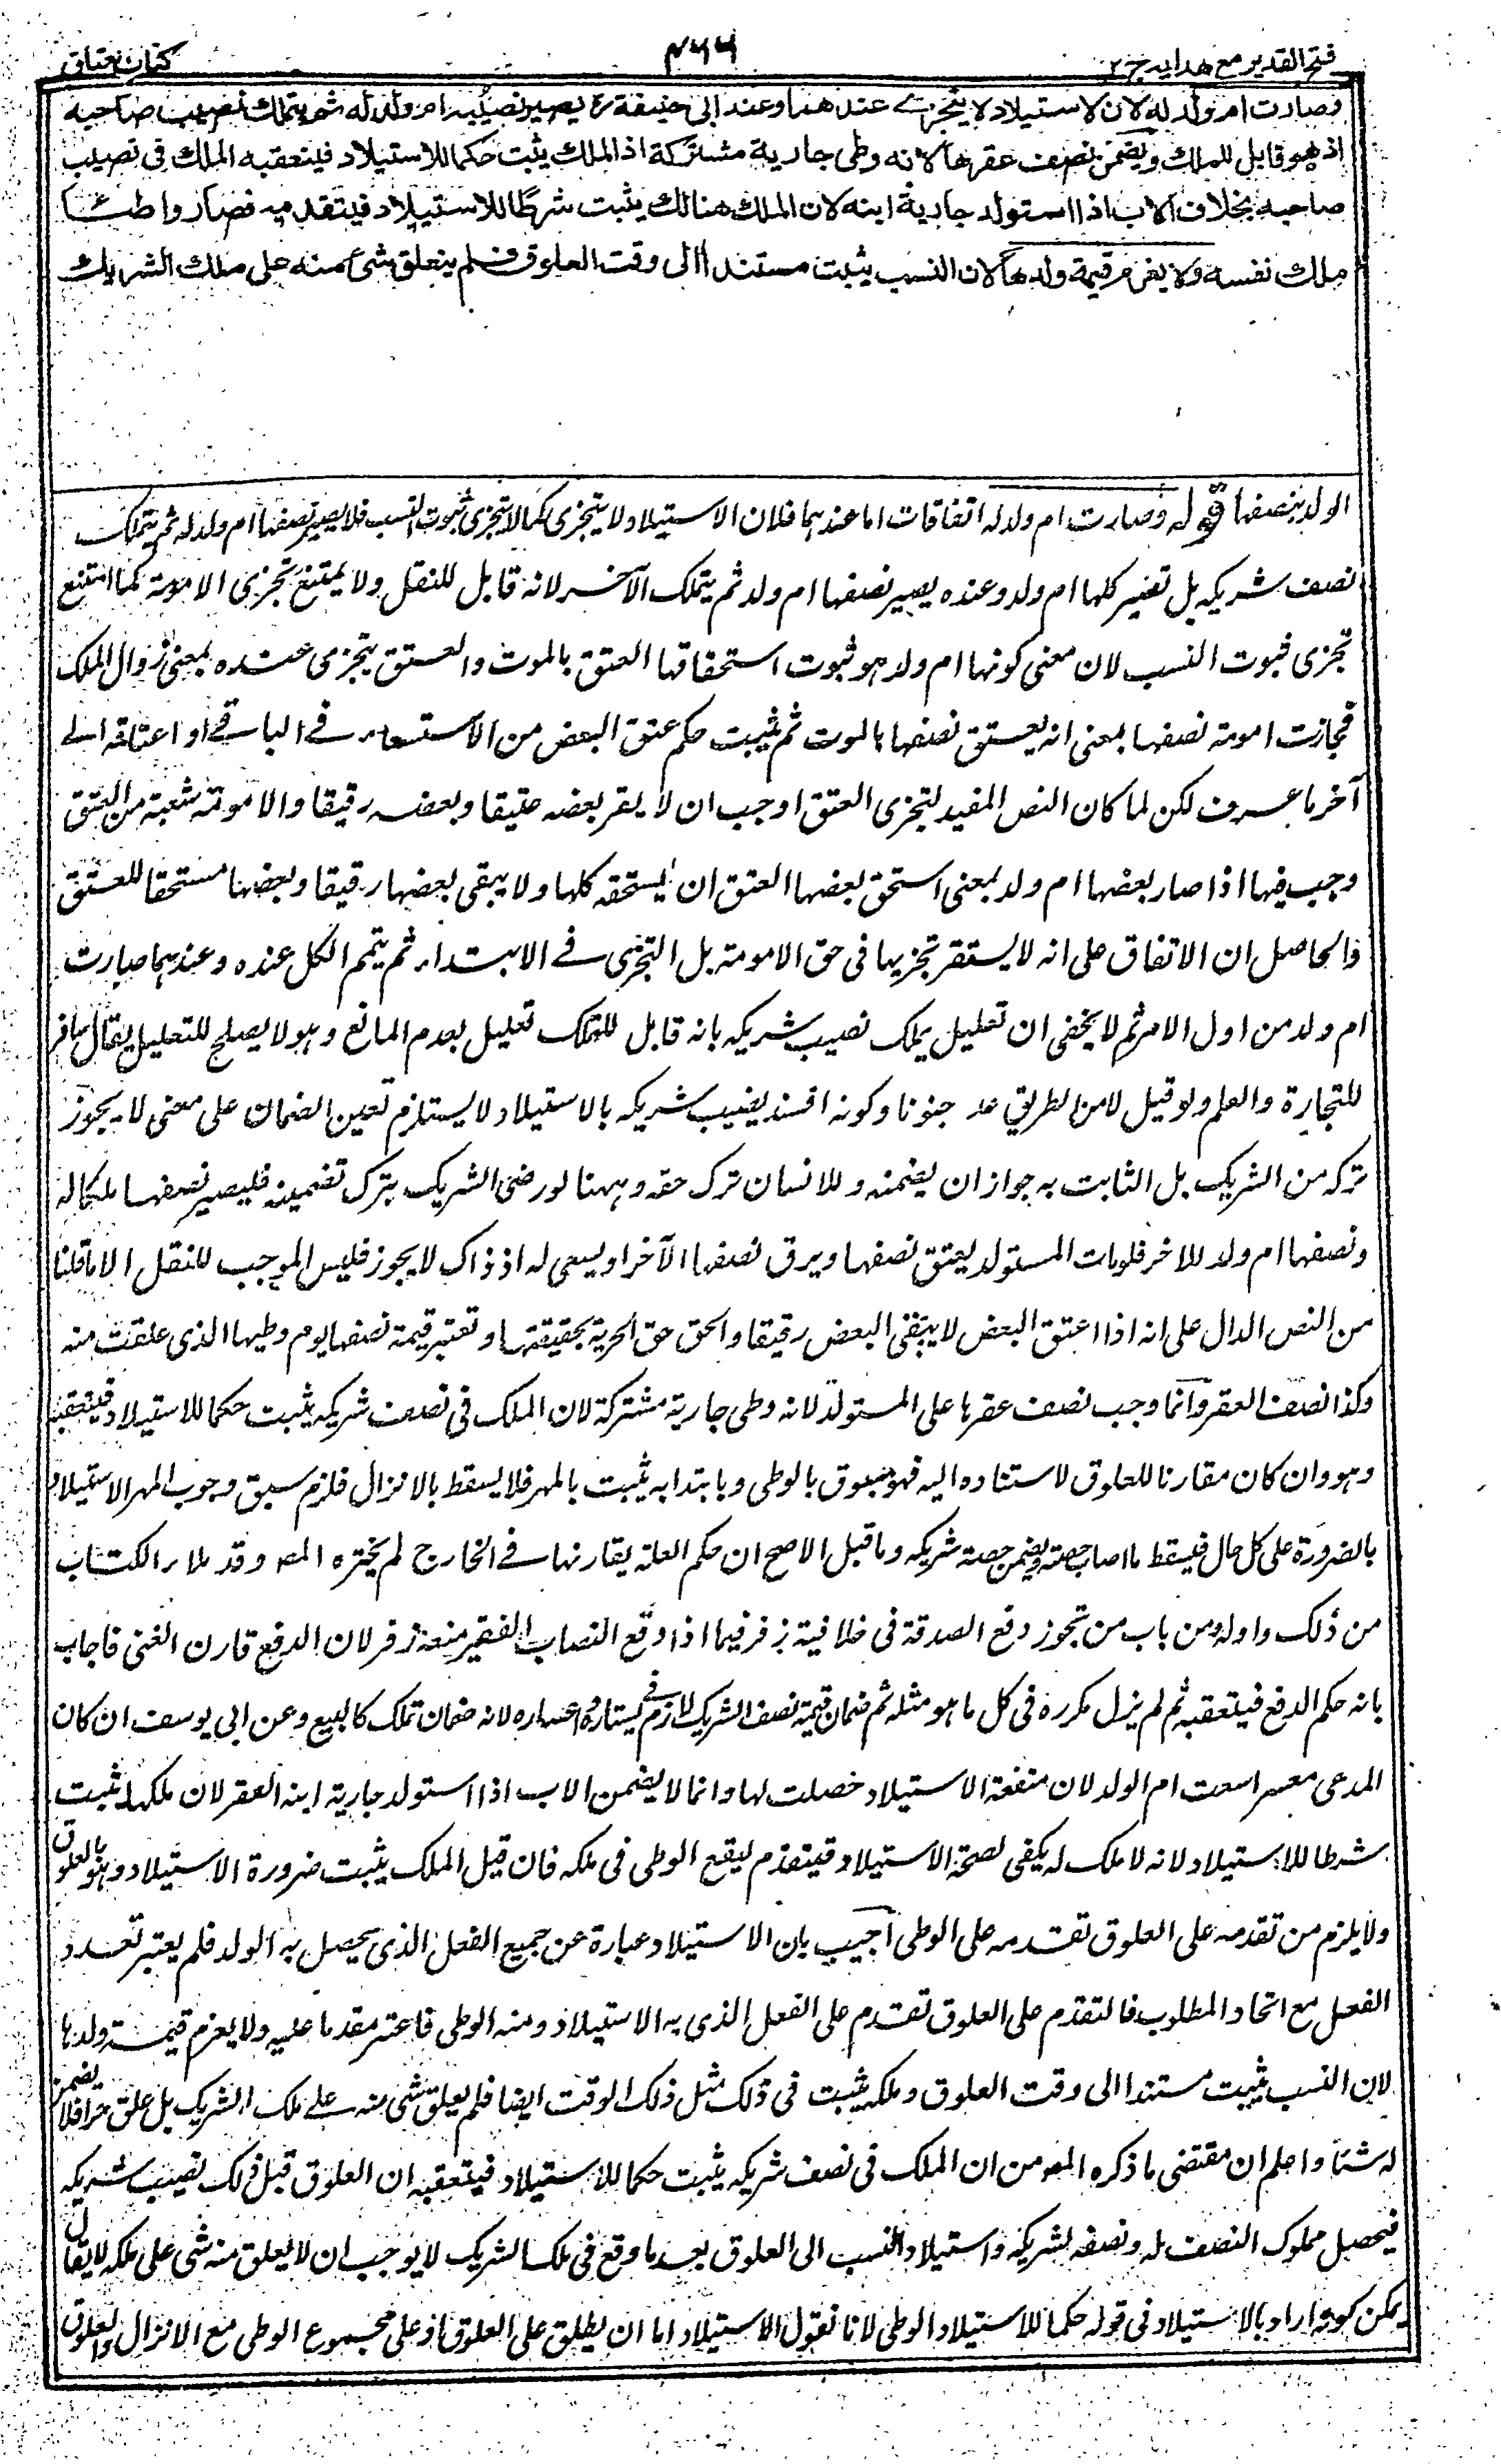 فتح القدير مع هدايه ج ٢
٤٦٦
كتاب عتاق
وصارت ام ولد له لان الاستيلاد لا يتجزى عندهما وعند ابى حنيفة رح يصير نصيبه ام ولد له ثم يتملك نصيب صاحبه
اذ هو قابل للملك ويضمن نصف عقرها لانه وطى جارية مشتركة اذ الملك يثبت حكما للاستيلاد فيتعقبه الملك فى نصيب
صاحبه بخلاف الاب اذا استولد جارية ابنه لان الملك هنالك يثبت شرطا للاستيلاد فيتقدمه فصار واطئا
ملك نفسه ولا يغرم قيمة ولدها لان النسب يثبت مستندا الى وقت العلوق فلم ينعلق شئ منه على ملك الشريك
الولد بنصفها قوله وصارت ام ولد له اتفاقات اما عندهما فلان الاستيلاد لا يتجزى كما لا يتجزى ثبوت النسب فلا يصير نصفها ام ولد له ثم يتملك
نصف شريكه بل تصير كلها ام ولد وعنده يصير نصفها ام ولد ثم يتملك الآخر لانه قابل للنقل ولا يمتنع تجزى الامومة كما امتنع
تجزى ثبوت النسب لان معنى كونها ام ولد هو ثبوت استحقاقها العتق بالموت والعتق يتجزى عنده بمعنى زوال الملك
فجازت امومة نصفها بمعنى انه يعتق نصفها بالموت ثم يثبت حكم عتق البعض من الاستسعاء فے الباقے او اعتاقه الے
آخر ما عرف لكن لما كان النص المفيد لتجزى العتق اوجب ان لا يقر بعضه عتيقا وبعضه رقيقا والامومة شعبة من العتق
وجب فيها اذا صار بعضها ام ولد بمعنى استحق بعضها العتق ان يستحقه كلها ولا يبقى بعضها رقيقا وبعضها مستحقا للعتق
والحاصل ان الاتفاق على انه لا يستقر تجزيها فى حق الامومة بل التجزى فے الابتداء ثم يتمم الكل عنده وعندهما صارت
ام ولد من اول الامر ثم لا يخفى ان تعليل يملك نصيب شريكه بانه قابل للتملك تعليل بعدم المانع وهو لا يصلح للتعليل يقال سافر
للتجارة والعلم ولو قيل لامن الطريق عد جنونا وكونه افسد نصيب شريكه بالاستيلاد لا يستلزم تعين الضمان على معنى لا يجوز
تركه من الشريك بل الثابت به جواز ان يضمنه وللانسان ترك حقه وههنا لو رضى الشريك بترك تضمينه فليصير نصفها ملكا له
ونصفها ام ولد للاخر فلو مات المستولد يعتق نصفها ويرق نصفها الآخر او يسعى له اذ ذاك لا يجوز فليس الموجب للنقل الا ما قلنا
من النص الدال على انه اذا اعتق البعض لا يبقى البعض رقيقا والحق حق الحرية بحقيقتها وتعتبر قيمة نصفها يوم وطيها الذى علقت منه
وكذا نصف العقر وانما وجب نصف عقرها على المستولد لانه وطى جارية مشتركة لان الملك فى نصف شريكه يثبت حكما للاستيلاد فيتعقبه
وهو وان كان مقارنا للعلوق لاستناده اليه فهو مسبوق بالوطى وبابتدائه يثبت بالمهر فلا يسقط بالانزال فلزم سبق وجوب المهر الاستيلاد
بالضرورة على كل حال فيسقط ما اصاب حصته ويضمن حصة شريكه وما قيل الاصح ان حكم العلة يقارنها فے الخارج لم يختره المصـ وقد ملاء الكتاب
من ذلك واوله ومن باب من تجوز دفع الصدقة فى خلافية زفر فيما اذا وقع النصاب الفقير منعه زفر لان الدفع قارن الغنى فاجاب
بانه حكم الدفع فيتعقبه ثم لم يزل مكرره فى كل ما هو مثله ثم ضمان قيمة نصف الشريك لازم فى يساره واعساره لانه ضمان تملك كالبيع وعن ابى يوسف ان كان
المدعى معسرا سعت ام الولد لان منفعة الاستيلاد حصلت لها وانما لا يضمن الاب اذا استولد جارية ابنه العقر لان ملكها يثبت
شرطا للاستيلاد لانه لا ملك له يكفى لصحة الاستيلاد فيتقدم ليقع الوطى فى ملكه فان قيل الملك يثبت ضرورة الاستيلاد وهو بالعلوق
ولا يلزم من تقدمه على العلوق تقدمه على الوطى اجيب بان الاستيلاد عبارة عن جميع الفعل الذى يحصل به الولد فلم يعتبر تعدد
الفعل مع اتحاد المطلوب فالتقدم على العلوق تقدم على الفعل الذى به الاستيلاد ومنه الوطى فاعتبر مقدما عليه ولا يغرم قيمة ولدها
لان النسب يثبت مستندا الى وقت العلوق وملكه يثبت فى ذلك مثل ذلك الوقت ايضا فلم يعلق شئ منه علے ملك الشريك بل علق حرا فلا يضمن
له شئا واعلم ان مقتضى ما ذكره المصـ من ان الملك فى نصف شريكه يثبت حكما للاستيلاد فيتعقبه ان العلوق قبل ذلك نصيب شريكه
فيحصل مملوك النصف له ونصفه لشريكه واستيلاد النسب الى العلوق بعد ما وقع فى ملك الشريك لا يوجب ان لا يعلق منه شئ على ملكه لا يقال
يمكن كونه اراد بالاستيلاد فى قوله حكما للاستيلاد الوطى لانا نقول الاستيلاد اما ان يطلق على العلوق او على مجموع الوطى مع الانزال والعلوق